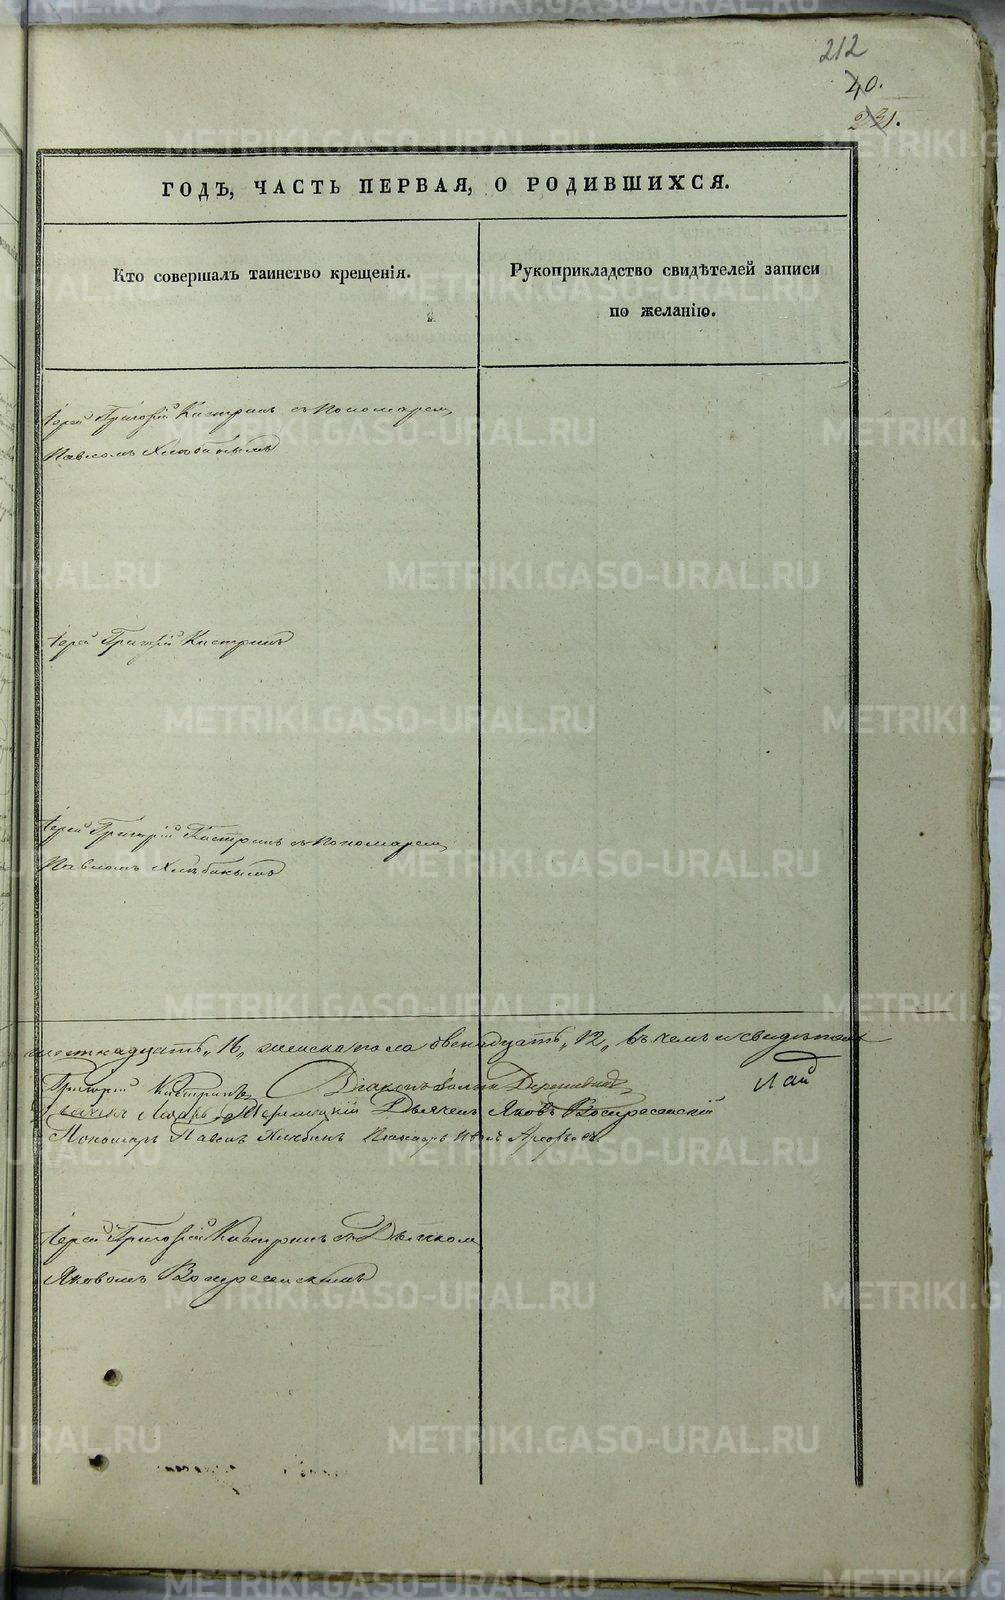 212
40.
231.
ГОДЪ, ЧАСТЬ ПЕРВАЯ, О РОДИВШИХСЯ.
Кто совершалъ таинство крещенія.
Рукоприкладство свидѣтелей записи
по желанію.
Іерей Григорій Кистринъ съ Пономаремъ
Павломъ Хлѣбинымъ
Іерей Григорій Кистринъ
Іерей Григорій Кистринъ съ Пономаремъ
Павломъ Хлѣбинымъ
шестнадцать „16„ женска пола двенадцать „12„ въ чемъ и свидѣтель
Григорій Кистринъ Діаконъ
Дьячекъ Яковъ Воскресенскій
Пономарь Павелъ Хлѣбинъ
Іерей Григорій Кистринъ съ Дьячкомъ
Яковомъ Воскресенскимъ
METRIKI.GASO-URAL.RU